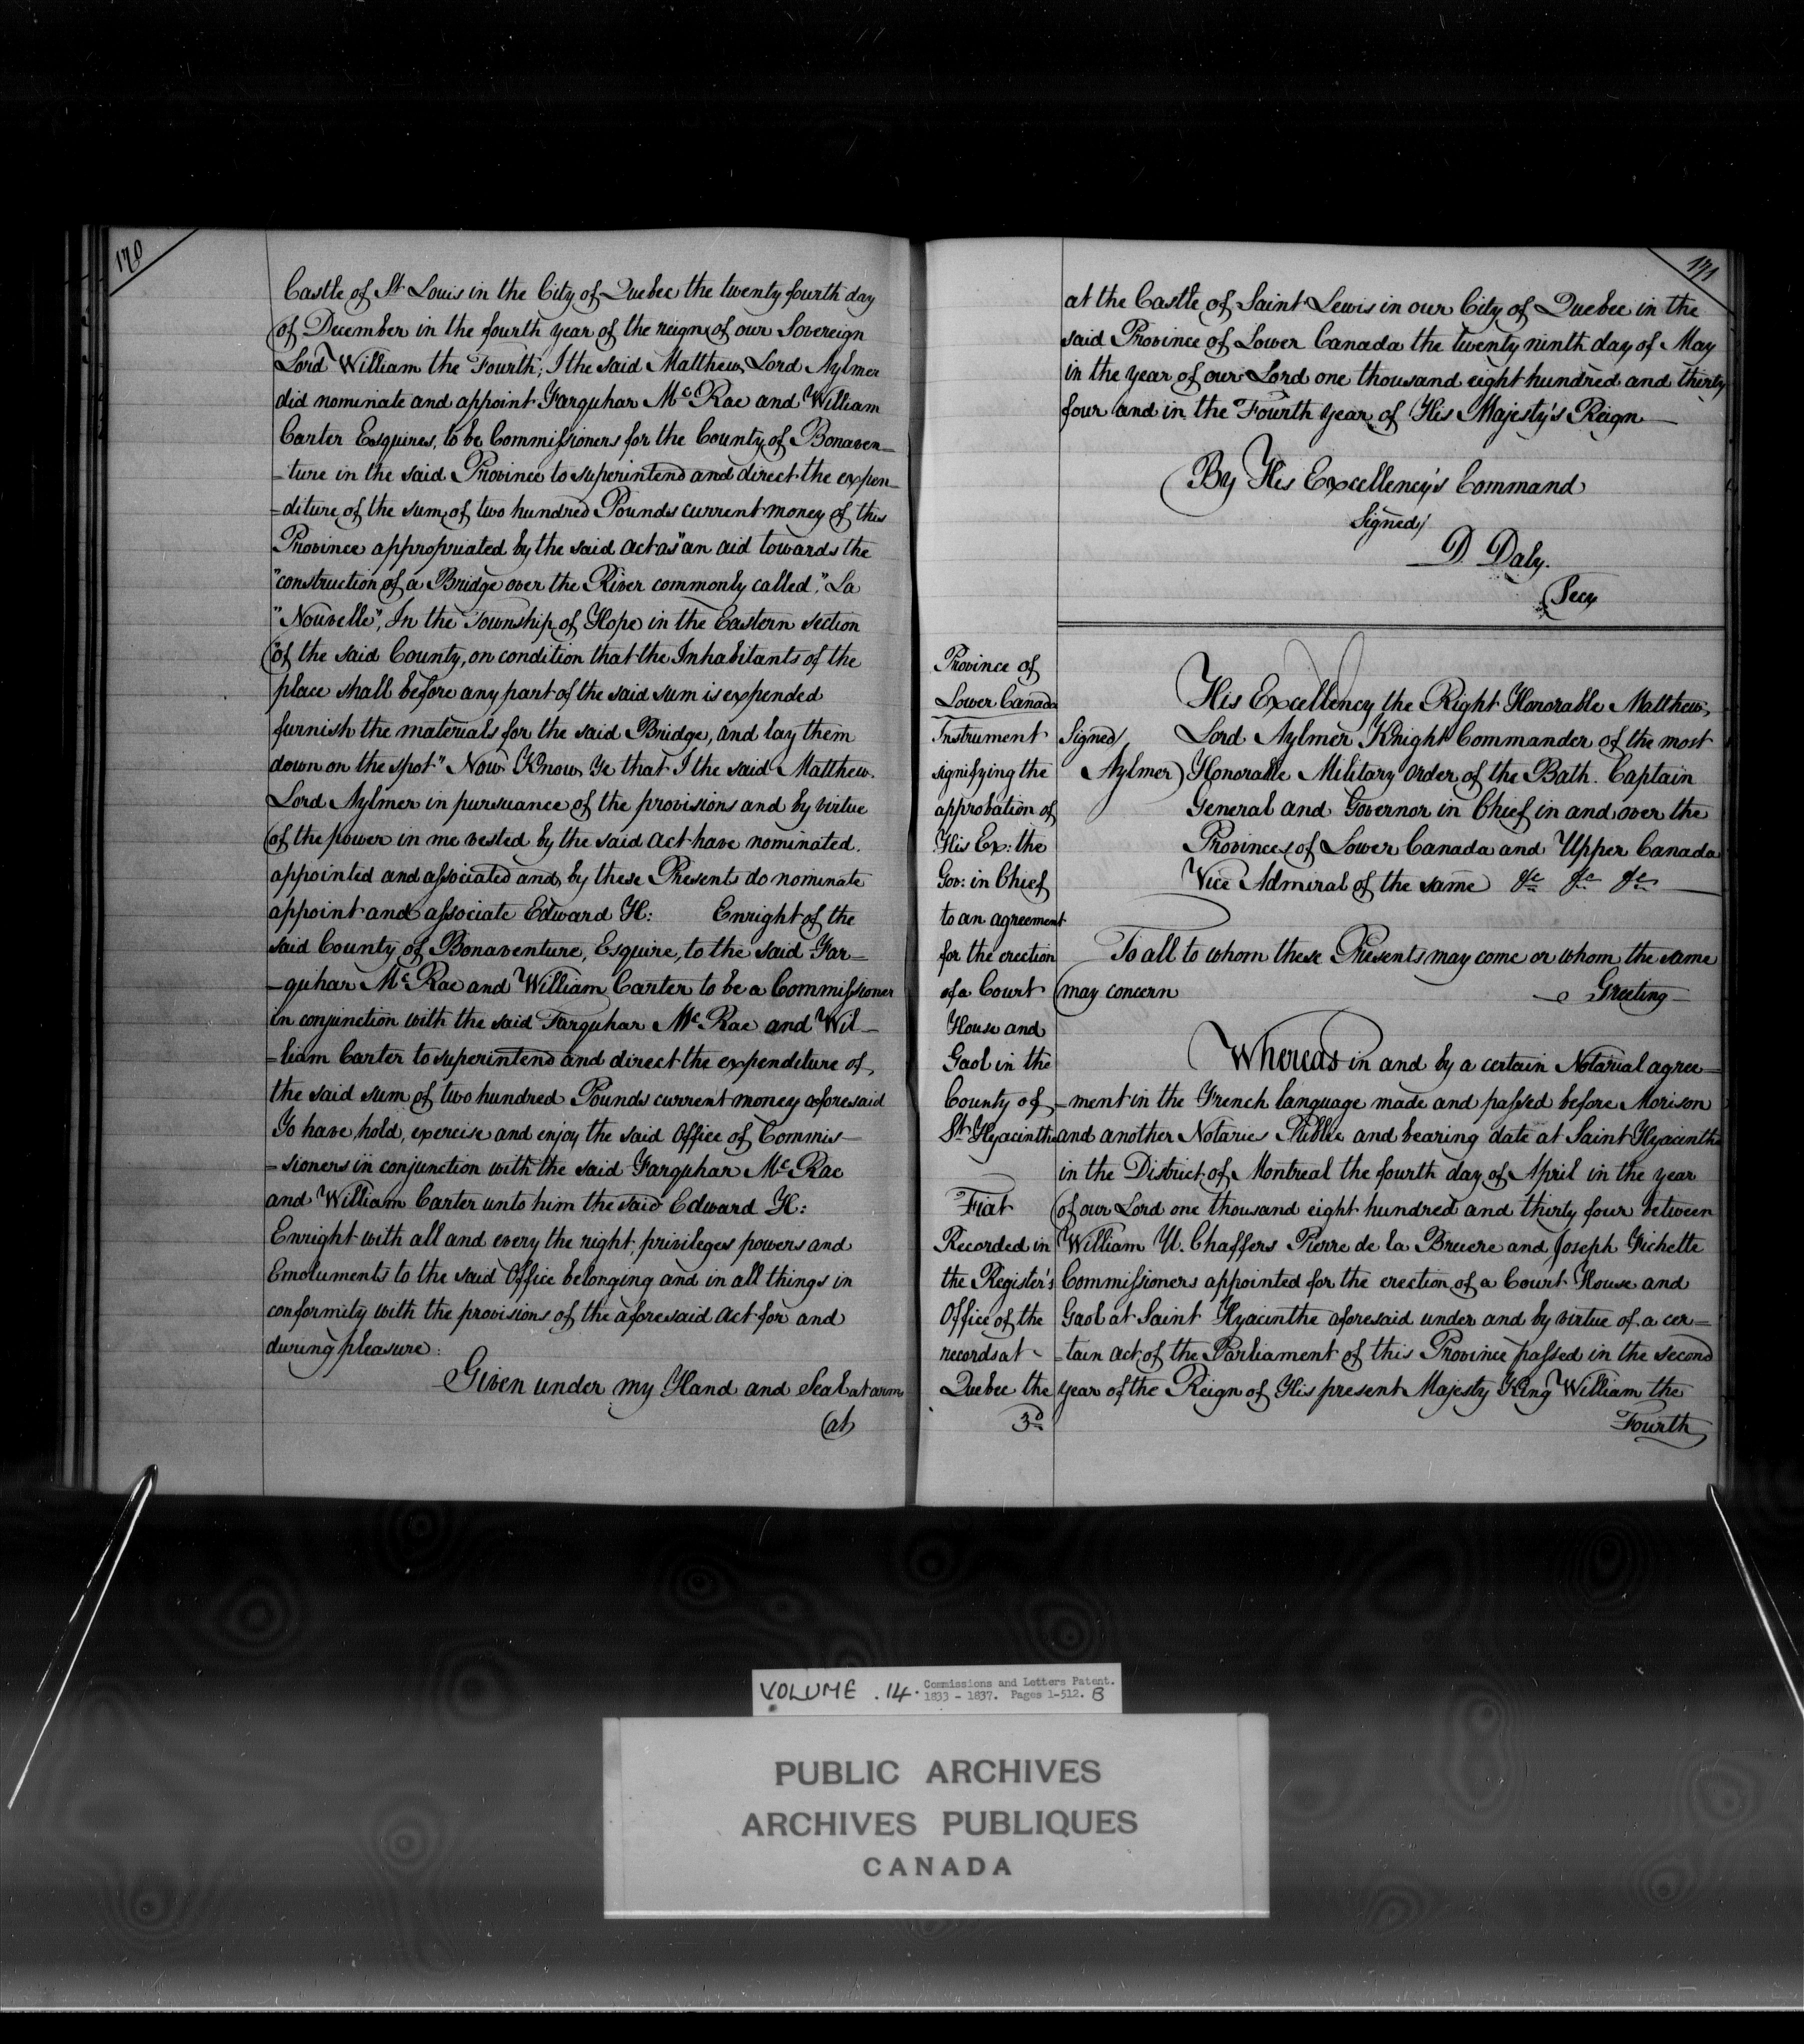 170
Castle of St Louis in the City of Quebec the twenty fourth day
of December in the fourth year of the reign of our Sovereign
Lord William the Fourth; I the said Matthew Lord Aylmer
did nominate and appoint Farquhar Mc Rae and William
Carter Esquires, to be Commissioners for the County of Bonaven-
-ture in the said Province to superintend and direct the expen-
-diture of the sum of two hundred Pounds current money of this
Province appropriated by the said act as "an aid towards the
"construction of a Bridge over the River commonly called, "La
"Nouvelle", In the Township of Hope in the Eastern section
"of the said County, on condition that the Inhabitants of the
place shall before any part of the said sum is expended
furnish the materials for the said Bridge, and lay them
down on the spot" Now Know Ye that I the said Matthew
Lord Aylmer in pursuance of the provisions and by virtue
of the power in me vested by the said act have nominated.
appointed and associated and by these Presents do nominate
appoint and associate Edward H: Enright of the
said County of Bonaventure, Esquire, to the said Far-
-quhar Mc Rae and William Carter to be a Commissioner
in conjunction with the said Farquhar Mc Rae and Wil-
-liam Carter to superintend and direct the expenditure of
the said sum of two hundred Pounds current money aforesaid
To have, hold, exercise and enjoy the said Office of Commis-
-sioners in conjunction with the said Farquhar Mc Rae
and William Carter unto him the said Edward H:
Enright with all and every the right, privileges powers and
Emoluments to the said Office belonging and in all things in
conformity with the provisions of the aforesaid act for and
during pleasure.
Given under my Hand and Seal at arms
at
171
at the Castle of Saint Lewis in our City of Quebec in the
said Province of Lower Canada the twenty ninth day of May
in the year of our Lord one thousand eight hundred and thirty
four and in the Fourth year of His Majesty's Reign
By His Excellency's Command
Signed/
D. Daly.
Secy
Province of
Lower Canada
Instrument
signifying the
approbation of
His Ex: the
Gov: in Chief
to an agreement
for the erection
of a Court
House and
Gaol in the
County of
St Hyacinthe
Fiat
Recorded in
the Register's
Office of the
records at
Quebec the
3d
Signed/
Aylmer
His Excellency the Right Honorable Matthew
Lord Aylmer Knight Commander of the most
Honorable Military Order of the Bath. Captain
General and Governor in Chief in and over the
Provinces of Lower Canada and Upper Canada
Vice Admiral of the same &c &c &c
To all to whom these Presents may come or whom the same
may concern Greeting
Whereas in and by a certain Notarial agree-
-ment in the French language made and passed before Morison
and another Notaries Public and bearing date at Saint Hyacinthe
in the District of Montreal the fourth day of April in the year
of our Lord one thousand eight hundred and thirty four between
William U. Chaffers Pierre de la Bruere and Joseph Grichette
Commissioners appointed for the erection of a Court House and
Gaol at Saint Hyacinthe aforesaid under and by virtue of a cer-
-tain act of the Parliament of this Province passed in the second
year of the Reign of His present Majesty King William the
Fourth
VOLUME .14. Commissions and Letters Patent.
1833 - 1837. Pages 1-512. B
PUBLIC ARCHIVES
ARCHIVES PUBLIQUES
CANADA